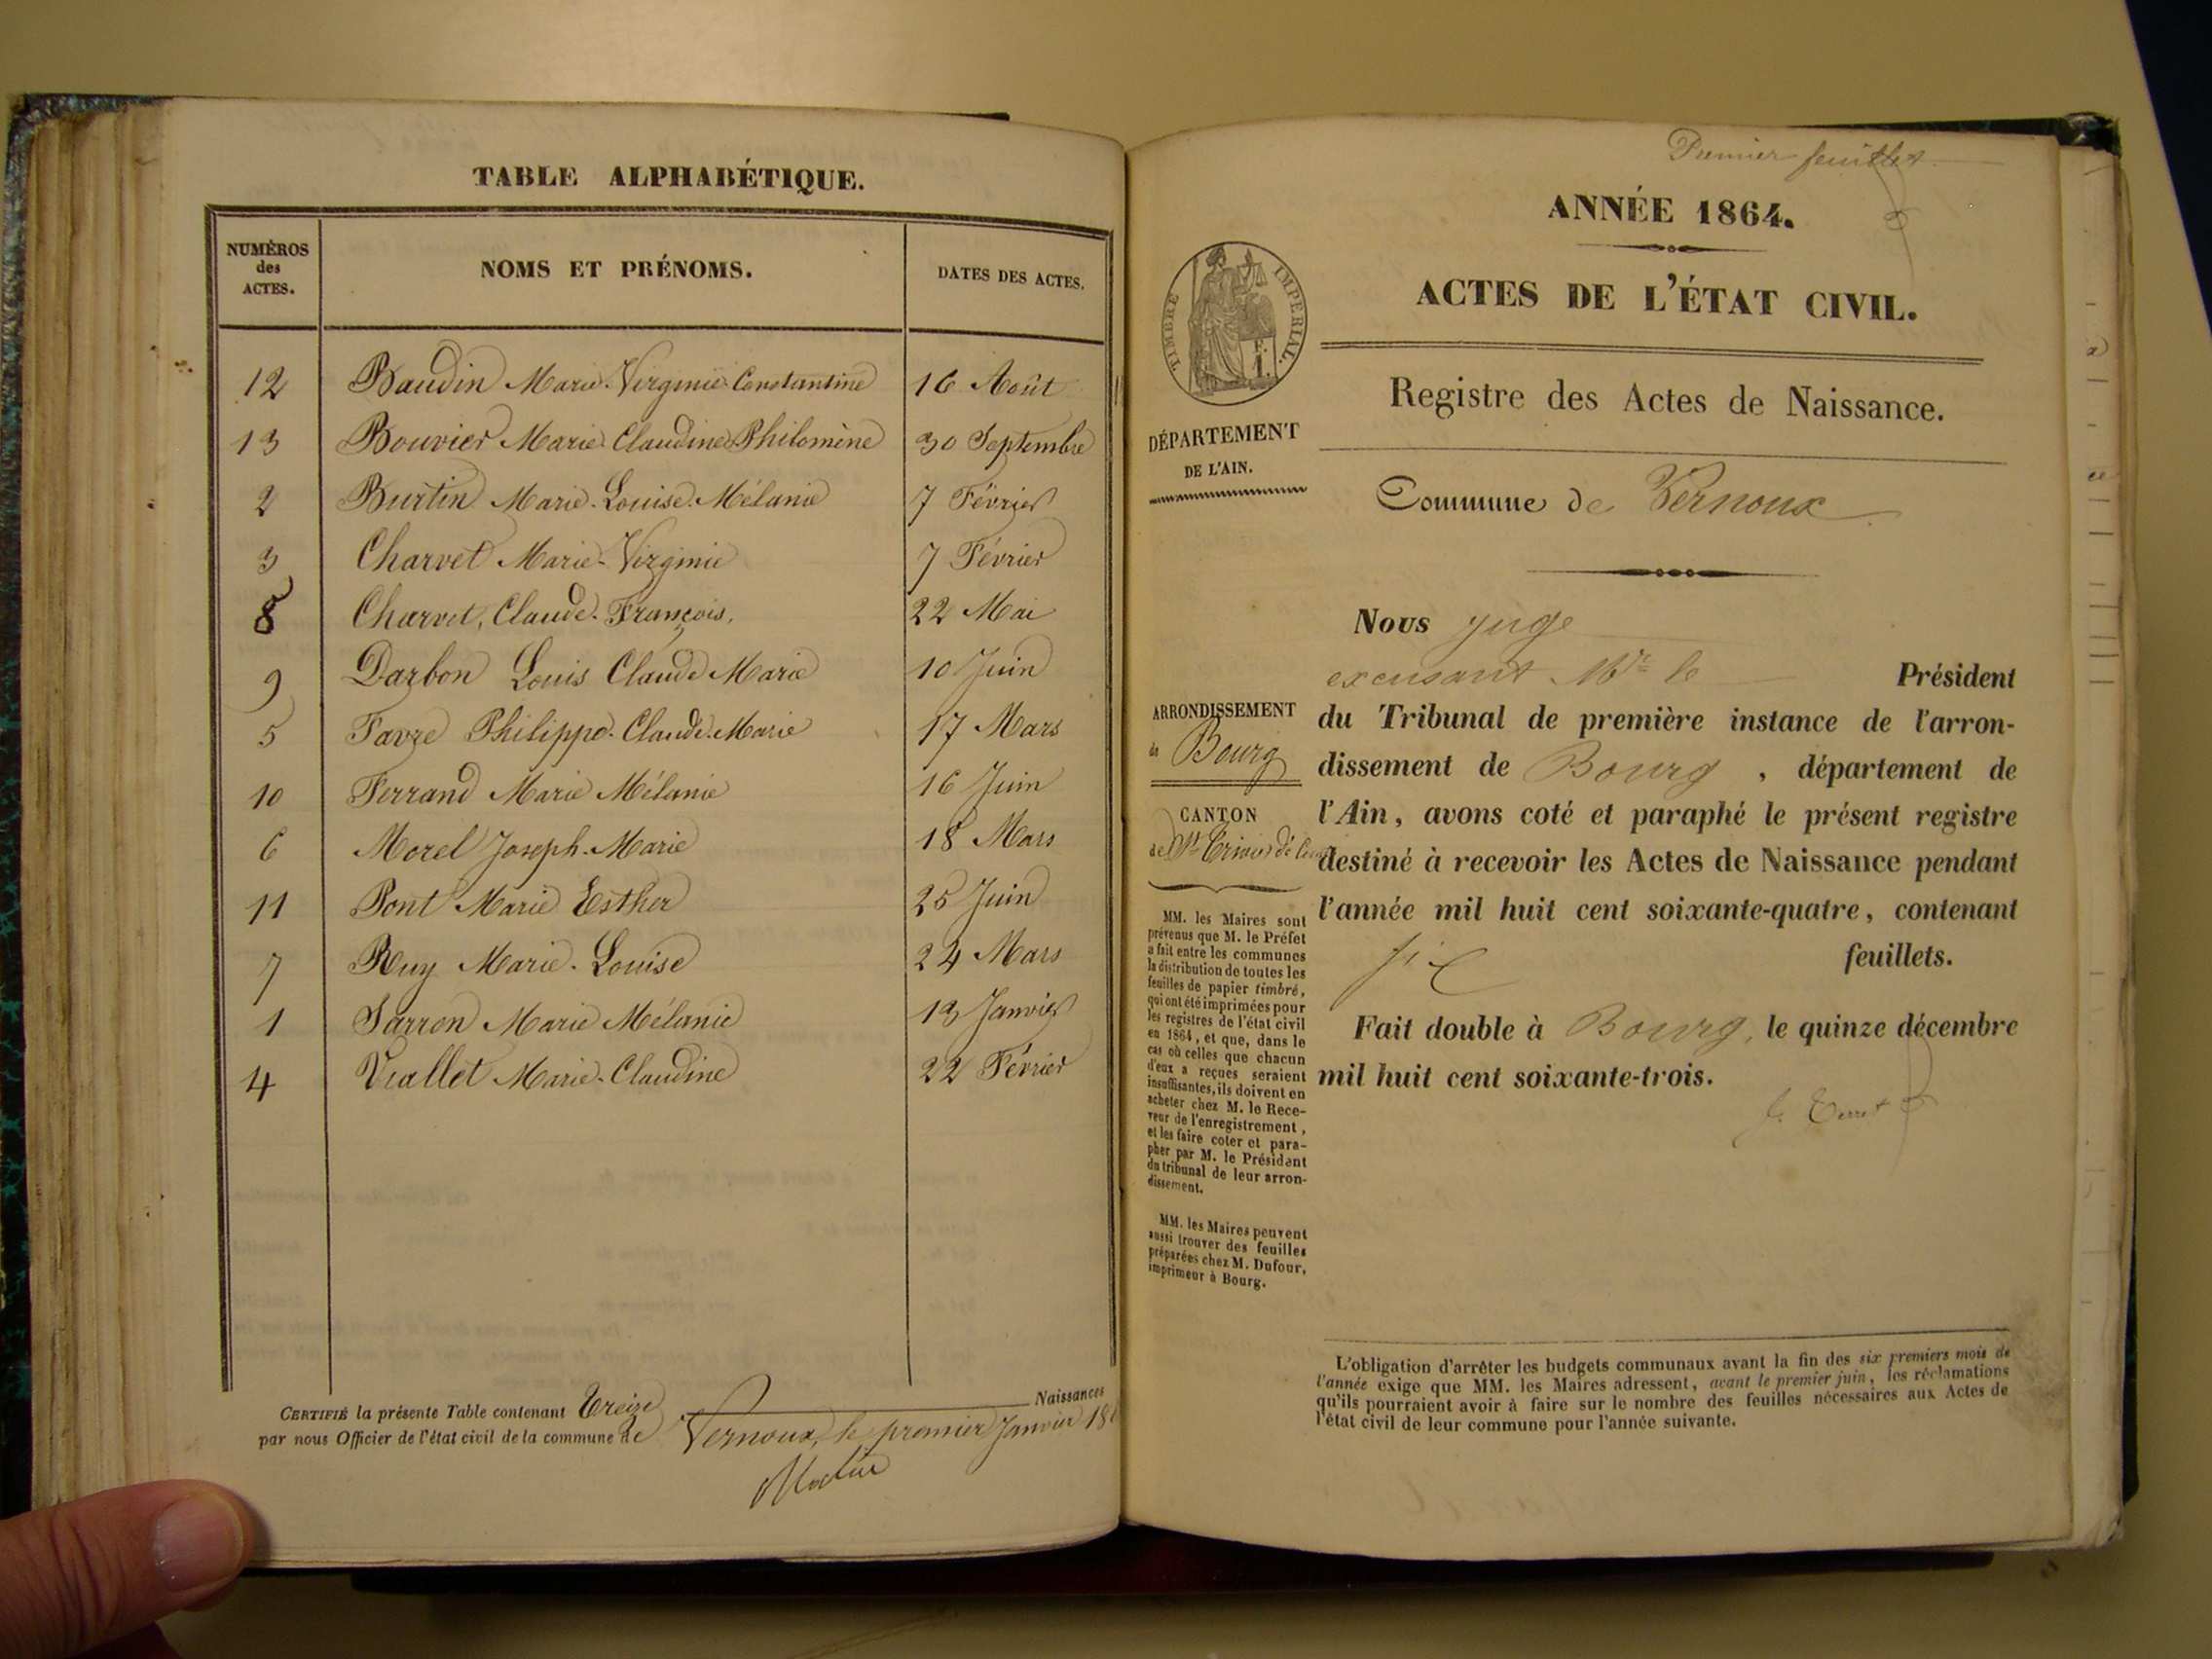 TABLE ALPHABÉTIQUE.
NUMÉROS
des
ACTES.
NOMS ET PRÉNOMS.
DATES DES ACTES.
12 Baudin Marie-Virginie-Constantine 16 Août
13 Bouvier Marie-Claudine-Philomène 30 Septembre
2 Burtin Marie-Louise-Mélanie 7 Février
3 Charvet Marie-Virginie 7 Février
8 Charvet, Claude-François, 22 Mai
9 Darbon Louis Claude Marie 10 Juin
5 Favre Philippe-Claude-Marie 17 Mars
10 Ferrand Marie Mélanie 16 Juin
6 Morel Joseph-Marie 18 Mars
11 Pont Marie Esther 25 Juin
7 Ruy Marie-Louise 24 Mars
1 Sarron Marie Mélanie 13 Janvier
4 Viallet Marie-Claudine 22 Février
CERTIFIÉ la présente Table contenant Treize Naissances
par nous Officier de l'état civil de la commune de Vernoux, le premier Janvier 18
Premier feuillet
ANNÉE 1864.
ACTES DE L'ÉTAT CIVIL.
TIMBRE IMPÉRIAL.
Registre des Actes de Naissance.
DÉPARTEMENT
DE L'AIN.
Commune de Vernoux
Nous juge
excusant Mr le Président
du Tribunal de première instance de l'arron-
dissement de Bourg, département de
l'Ain, avons coté et paraphé le présent registre
destiné à recevoir les Actes de Naissance pendant
l'année mil huit cent soixante-quatre, contenant
six feuillets.
Fait double à Bourg, le quinze décembre
mil huit cent soixante-trois.
ARRONDISSEMENT
de Bourg
CANTON
de St Trivier de
MM. les Maires sont
prévenus que M. le Préfet
a fait entre les communes
la distribution de toutes les
feuilles de papier timbré,
qui ont été imprimées pour
les registres de l'état civil
en 1864, et que, dans le
cas où celles que chacun
d'eux a reçues seraient
insuffisantes, ils doivent en
acheter chez M. le Rece-
veur de l'enregistrement,
et les faire coter et para-
pher par M. le Président
du tribunal de leur arron-
dissement.
MM. les Maires peuvent
aussi trouver des feuilles
préparées chez M. Dufour,
imprimeur à Bourg.
L'obligation d'arrêter les budgets communaux avant la fin des six premiers mois de
l'année exige que MM. les Maires adressent, avant le premier juin, les réclamations
qu'ils pourraient avoir à faire sur le nombre des feuilles nécessaires aux Actes de
l'état civil de leur commune pour l'année suivante.